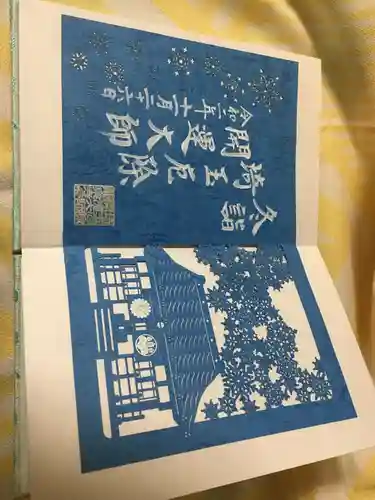 冬詣
埼玉厄除
開運大師
令和二年十二月二十六日